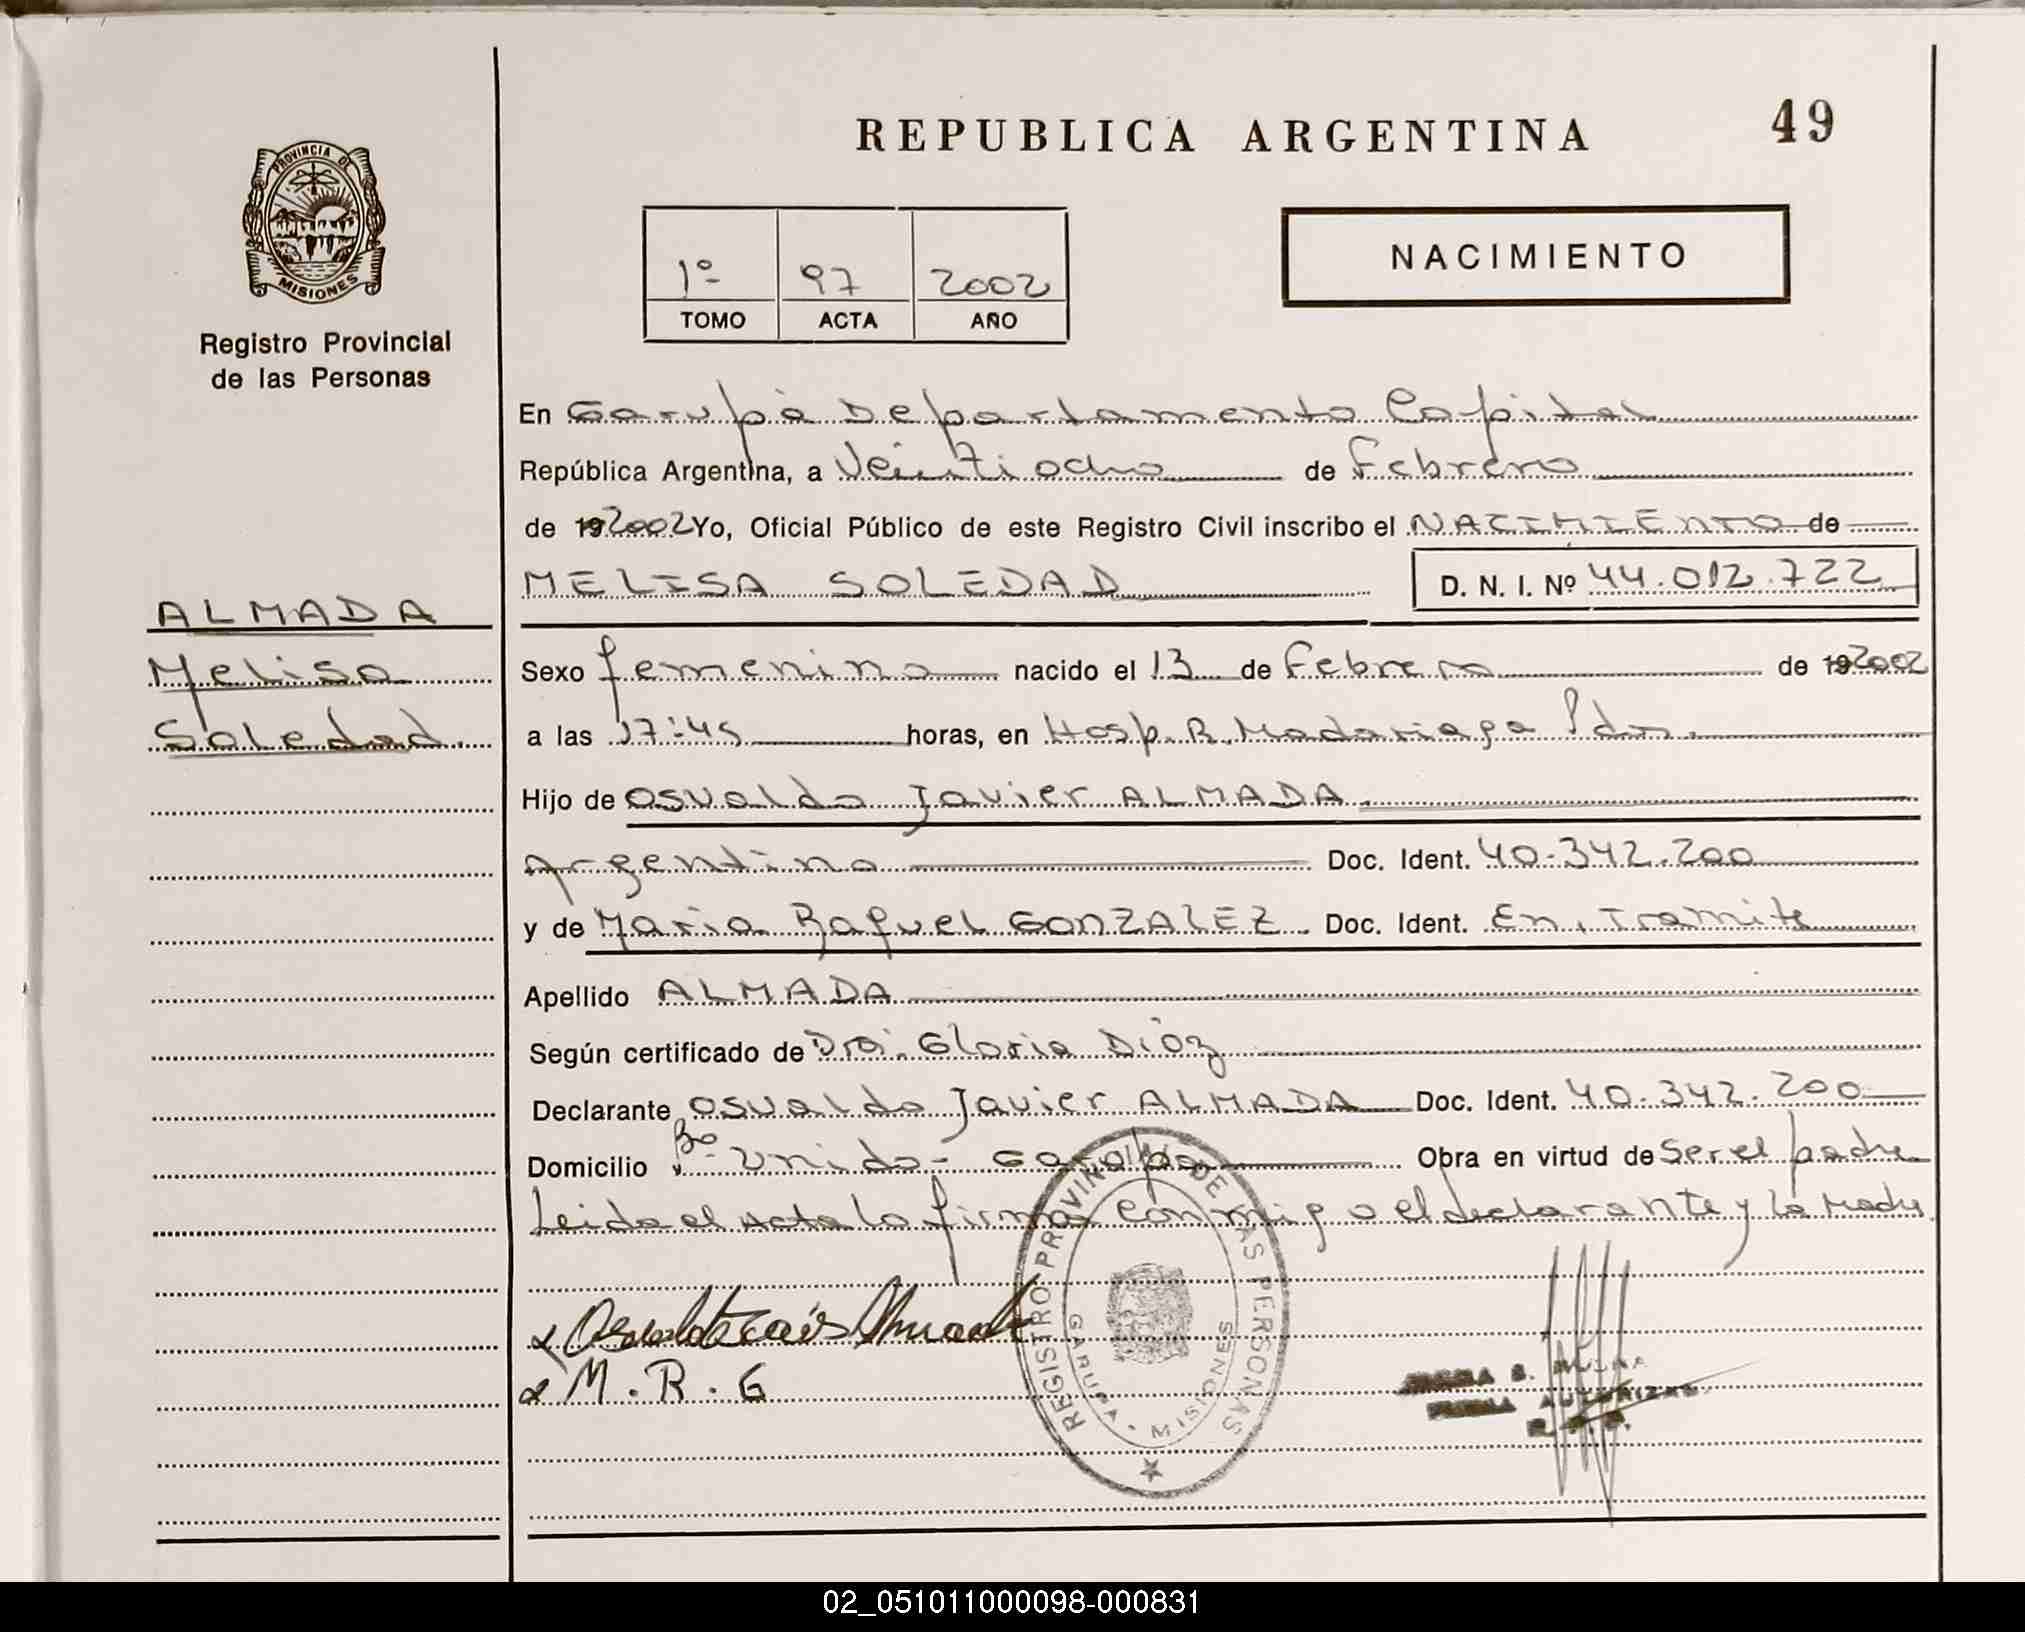 REPUBLICA ARGENTINA
49
PROVINCIA DE
MISIONES
Registro Provincial
de las Personas
NACIMIENTO
1º 97 2002
TOMO ACTA AÑO
En Garupá Departamento Capital
República Argentina, a Veintiocho de Febrero
de 19 2002 Yo, Oficial Público de este Registro Civil inscribo el NACIMIENTO de
MELISA SOLEDAD D. N. I. Nº 44.012.722
ALMADA
Melisa
Soledad.
Sexo femenino nacido el 13 de Febrero de 19 2002
a las 17:45 horas, en Hosp. R. Madariaga Pdas.
Hijo de Osvaldo Javier ALMADA.
Argentino Doc. Ident. 40.342.200
y de Maria Raquel GONZALEZ. Doc. Ident. En Tramite
Apellido ALMADA
Según certificado de Dra. Gloria Diaz
Declarante Osvaldo Javier ALMADA Doc. Ident. 40.342.200
Domicilio Bº Unido - Garupá Obra en virtud de Ser el padre
Leida el Acta la firma conmigo el declarante y la Madre.
REGISTRO PROVINCIAL DE LAS PERSONAS
GARUPA - MISIONES
M. R. G
02_051011000098-000831